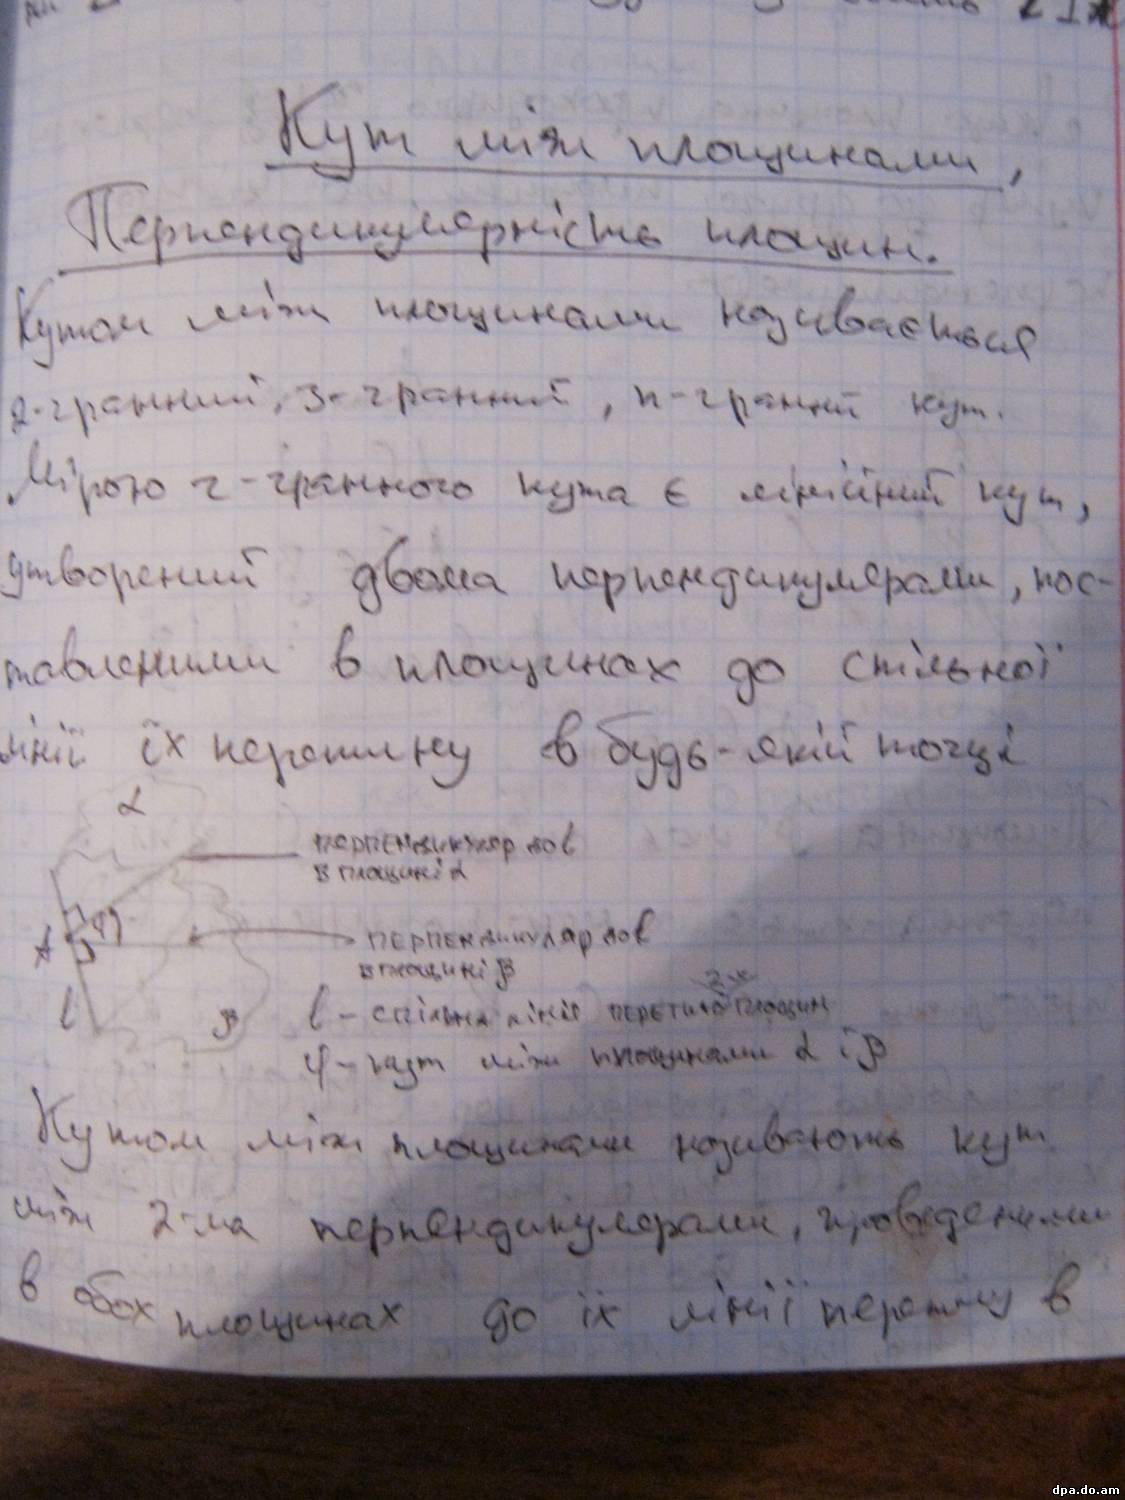 Кут між площинами,
Перпендикулярність площин.
Кутом між площинами називається
2-гранний, 3-гранний, n-гранний кут.
Мірою 2-гранного кута є лінійний кут,
утворений двома перпендикулярами, пос-
тавленими в площинах до спільної
лінії їх перетину в будь-якій точці
α
перпендикуляр до ℓ
в площині α
A
φ
перпендикуляр до ℓ
в площині β
ℓ
β
2-х
ℓ - спільна лінії перетину площин
φ - кут між площинами α і β
Кутом між площинами називають кут
між 2-ма перпендикулярами, проведеними
в обох площинах до їх лінії перетину в
dpa.do.am